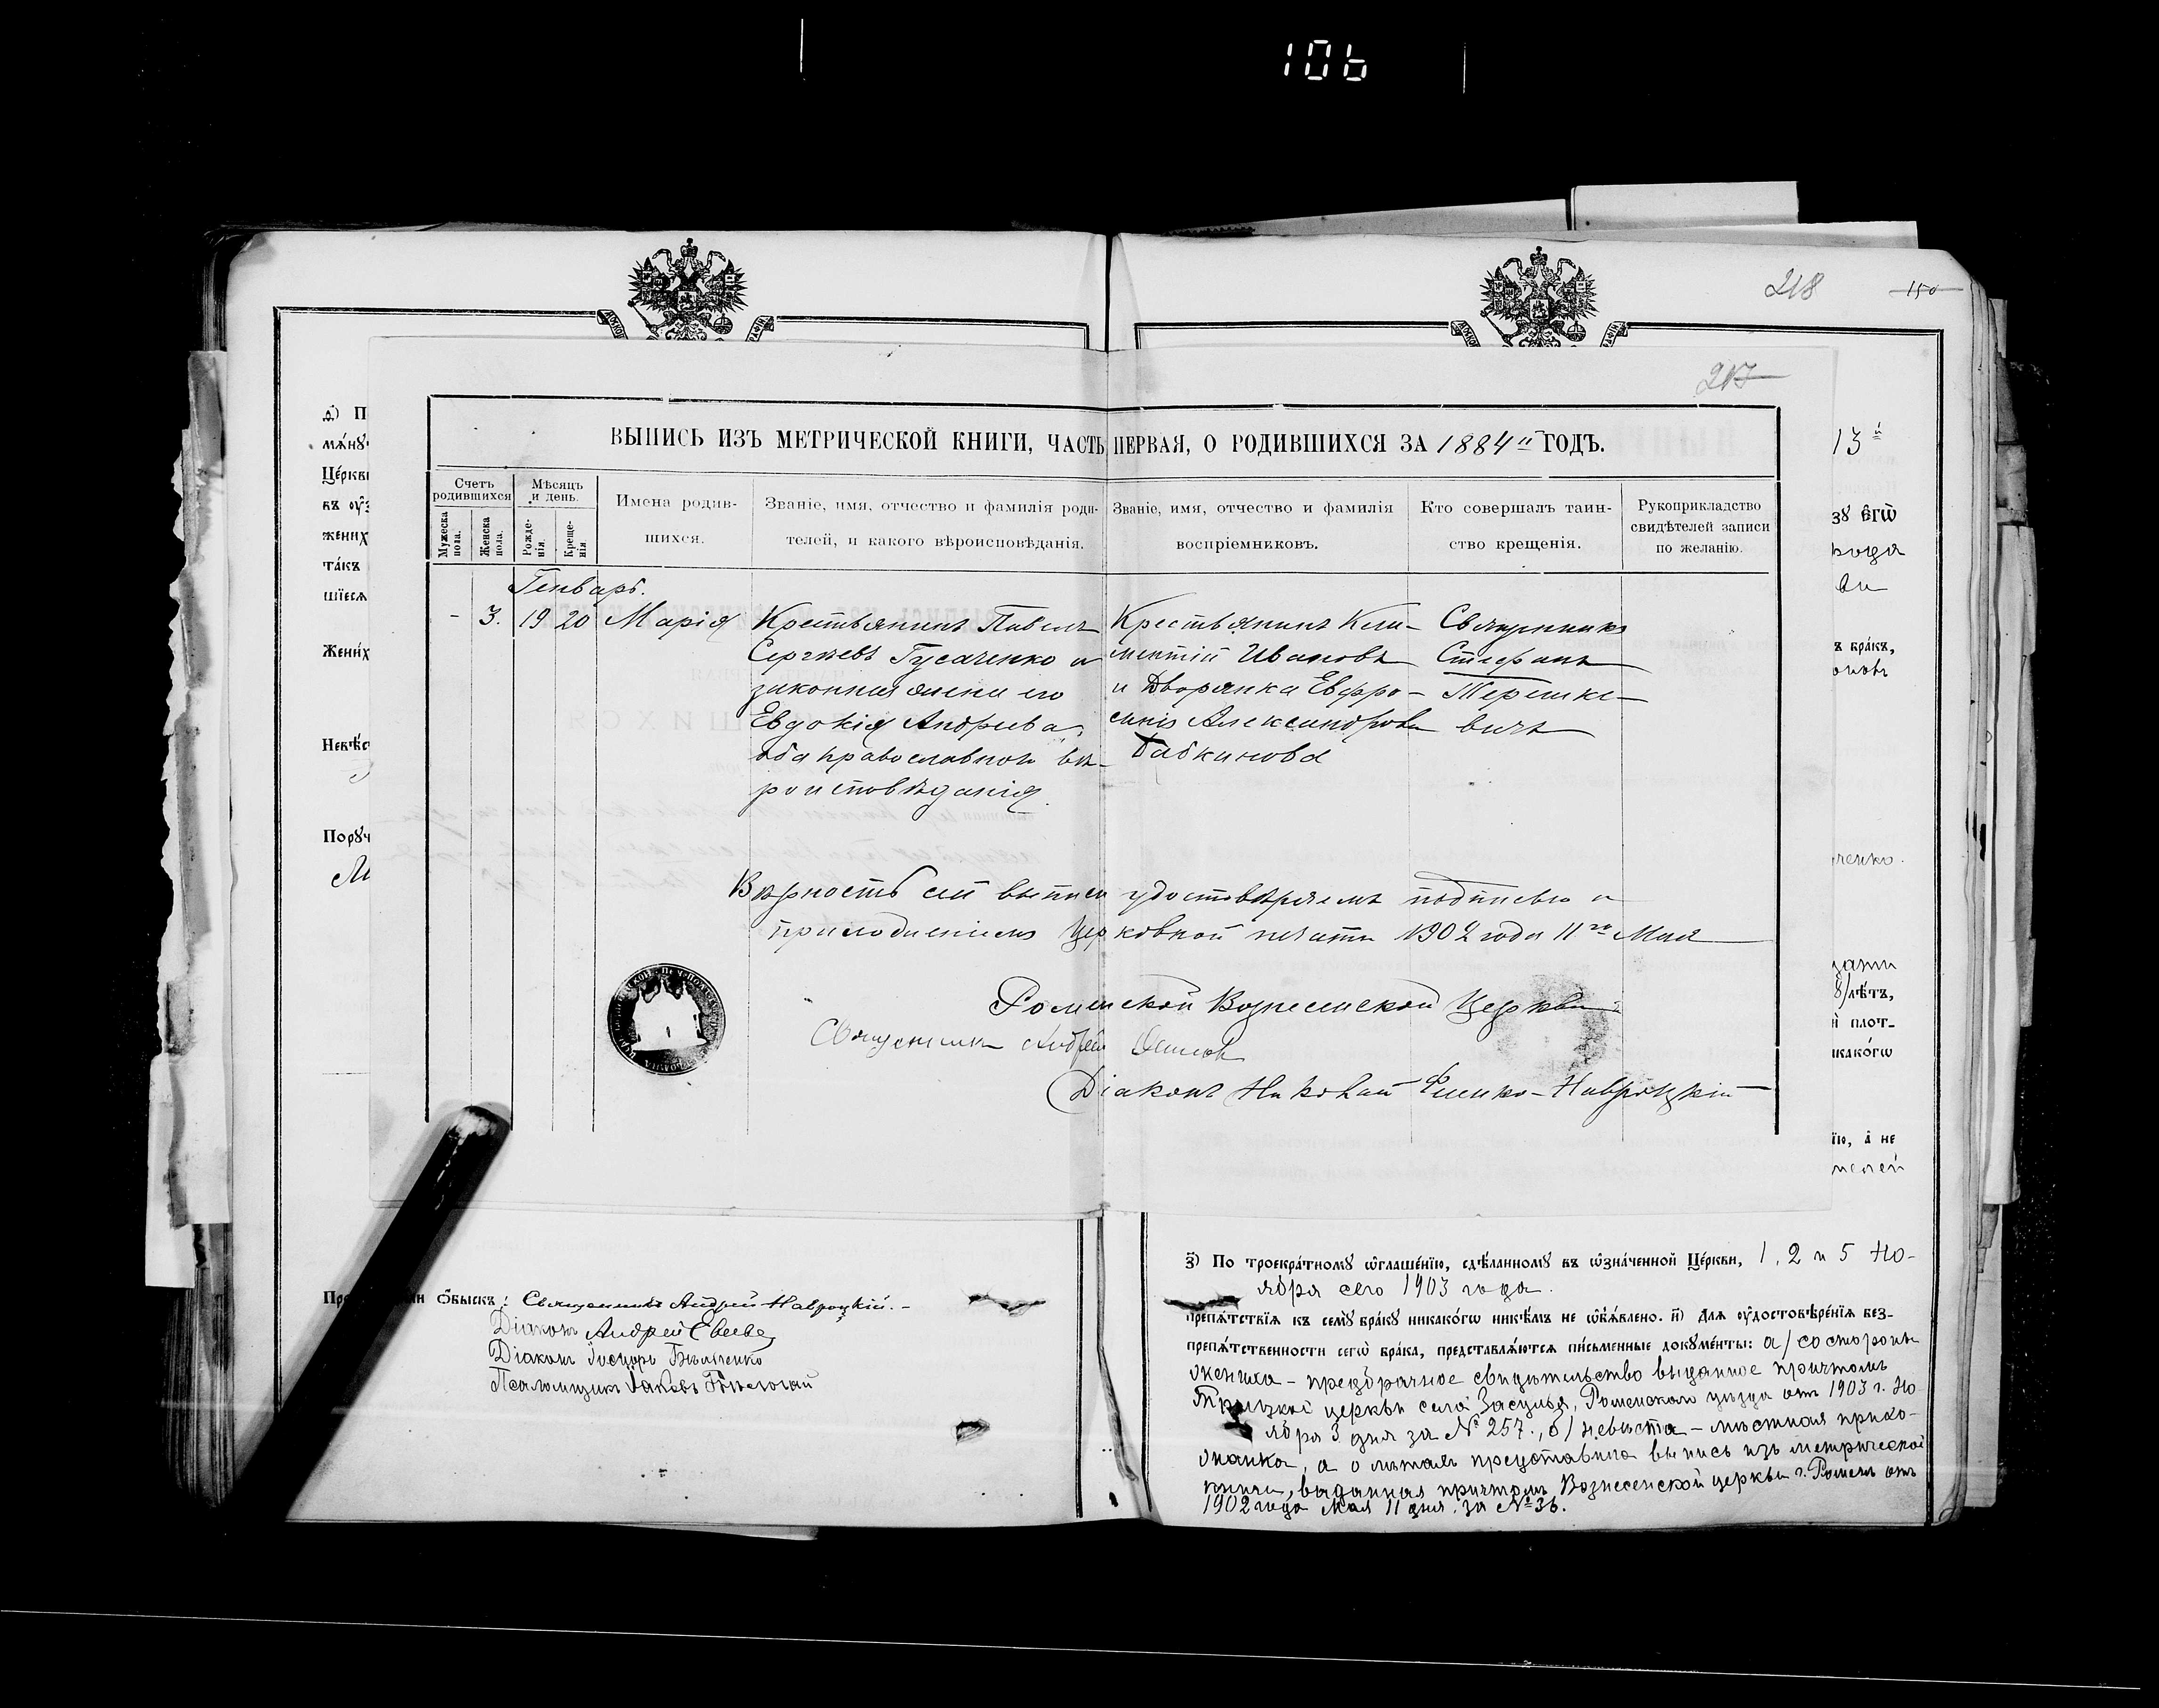 106
218
150
217
ВЫПИСЬ ИЗЪ МЕТРИЧЕСКОЙ КНИГИ, ЧАСТЬ ПЕРВАЯ, О РОДИВШИХСЯ ЗА 1884й ГОДЪ.
Счетъ родившихся
Мѣсяцъ и день.
Мужеска пола.
Женска пола.
Рожденія.
Крещенія.
Имена родившихся.
Званіе, имя, отчество и фамилія родителей, и какого вѣроисповѣданія.
Званіе, имя, отчество и фамилія воспріемниковъ.
Кто совершалъ таинство крещенія.
Рукоприкладство свидѣтелей записи по желанію.
Генварь.
- 3. 19 20 Марія
Крестьянинъ Павелъ
Сергѣевъ Гусаченко и
законная жена его
Евдокія Андреева,
оба православнаго вѣ-
роисповѣданія.
Крестьянинъ Кли-
ментій Ивановъ
и Дворянка Евфро-
синія Александрова
Бабкинова
Священникъ
Стефанъ
Терешке-
вичъ
Вѣрность сей выписи удостовѣряемъ подписью и
приложеніемъ Церковной печати 1902 года 11го Мая
Роменской Вознесенской Церкви
Священникъ Андрей
Діаконъ Николай Навроцкій
д) П
мѧнꙋ
Це́ркви
въ оу҆з
жених
та́къ
шїесѧ
Жени́х
Невѣ́с
Порꙋч
13й
зꙋ є҆гѡ̀
года
въ бра́къ,
ченко.
лѣ́тъ,
плот-
никако́гѡ
їю, а҆ не
ѻ҆бы́скъ: Священникъ Андрей Навроцкій.-
Діаконъ Андрей Евсевс
Діаконъ
Псаломщикъ Іаковъ
з҃) По троекра́тномꙋ ѡ҆глаше́нїю, сдѣ́ланномꙋ въ ѡ҆зна́ченной Це́ркви, 1, 2 и 5 Но-
ября сего 1903 года.
препѧ́тствїѧ къ семꙋ̀ бра́кꙋ никако́гѡ никѣ́мъ не ѡ҆б̾ѧ́влено. и҃) Для оу҆достовѣре́нїѧ без-
препѧ́тственности сегѡ̀ бра́ка, представлѧ́ютсѧ пи́сьменные докꙋме́нты: а/ со стороны
жениха - предбрачное свидѣтельство выданное причтомъ
Троицкой церкви села Засулья, Роменскаго уѣзда отъ 1903 г. Но-
ября 3 дня за № 257., б/ невѣста - мѣстная прихо-
жанка, а о лѣтахъ представила выпись изъ метрической
книги, выданная причтомъ Вознесенской церкви г. Роменъ отъ
1902 года мая 11 дня за № 36.